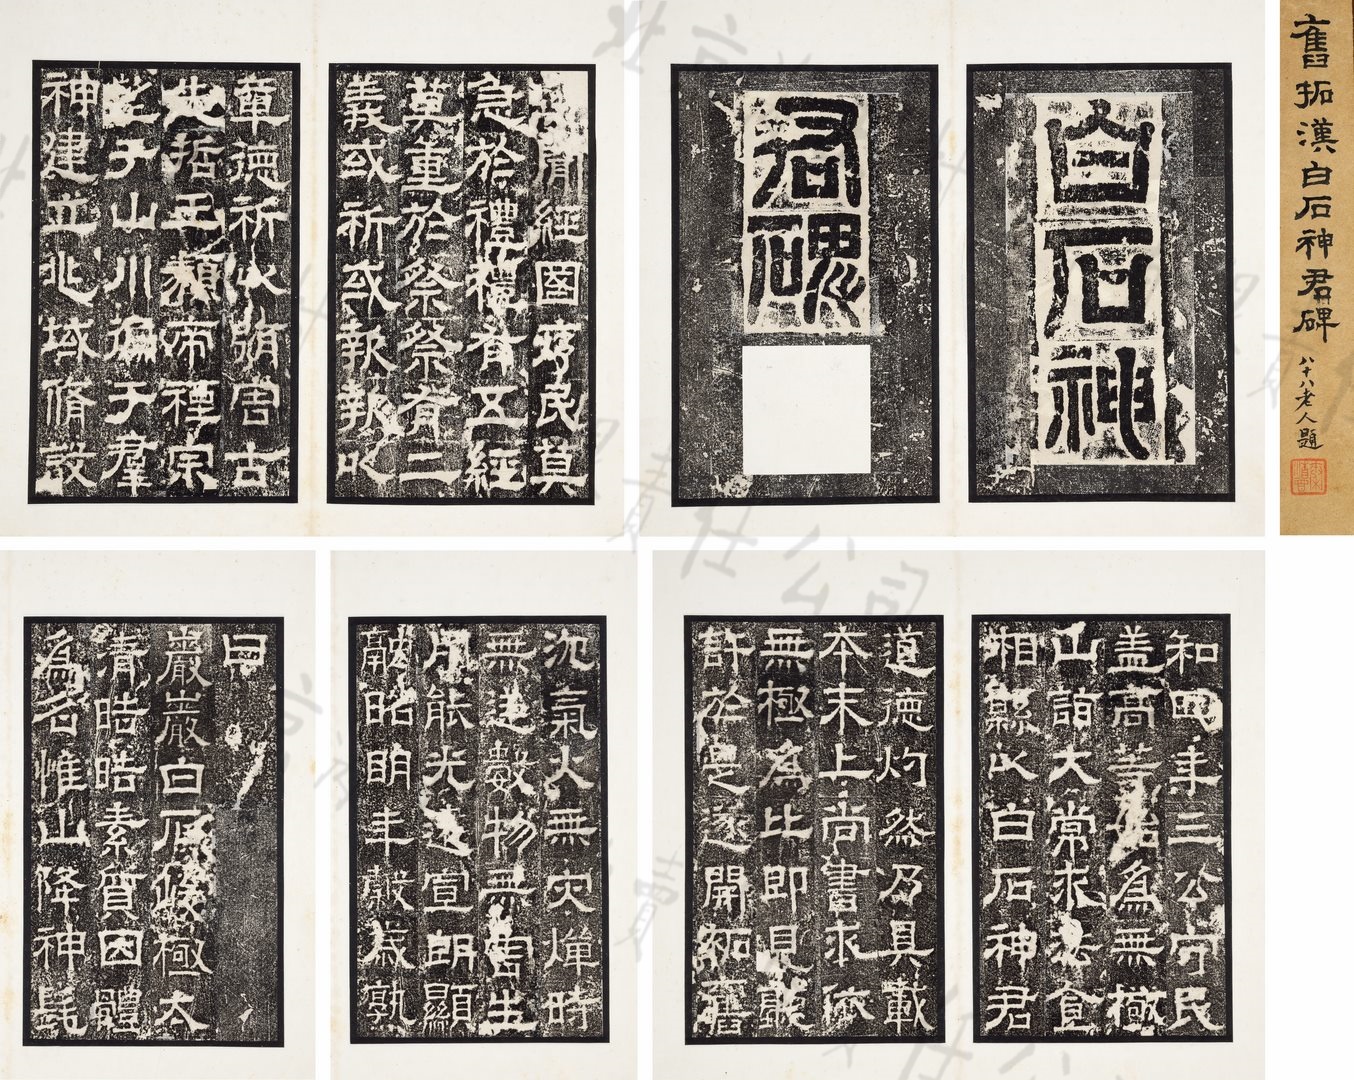 舊拓漢白石神君碑
八十八老人題
白石神
君碑
聞經國序民莫
急於禮禮有五經
莫重於祭祭有二
義或祈或報報以
章德祈以弭害古
先哲王類帝禋宗
望于山川徧于羣
神建立兆域脩設
和四年三公守民
蓋高等始為無極
山詣大常求法食
相縣以白石神君
道德灼然乃具載
本末上尚書求依
無極為比即見聽
許於是遂開祏舊
沴氣火無灾燀時
無逆數物無害生
用能光遠宣朗顯
融昭朙年穀歲孰
曰
巖巖白石峻極太
清皓皓素質因體
為名惟山降神髦